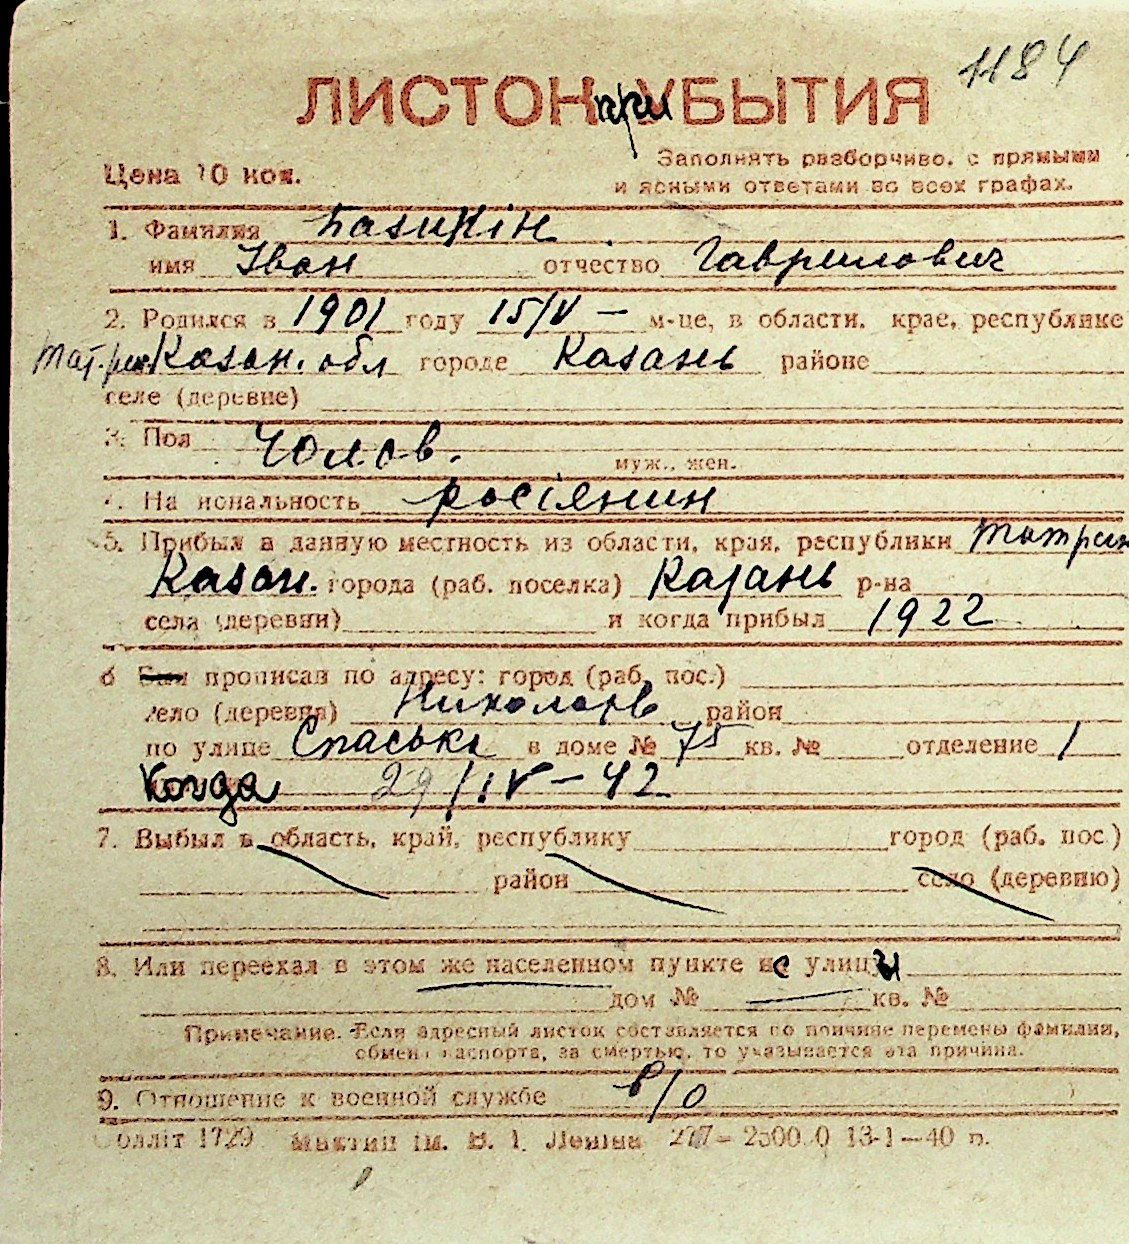 1184
ЛИСТОК при УБЫТИЯ
Цена 10 коп.
Заполнять разборчиво, с прямыми
и ясными ответами во всех графах.
1. Фамилия Базикін
имя Іван отчество Гаврилович
2. Родился в 1901 году 15/V – м-це, в области, крае, республике
Тат. рес Казан. обл городе Казань районе
селе (деревне)
3. Пол чолов.
муж., жен.
4. Национальность росіянин
5. Прибыл в данную местность из области, края, республики Татрес
Казан. города (раб. поселка) Казань р-на
села (деревни) и когда прибыл 1922
6 Был прописан по адресу: город (раб. пос.)
село (деревня) Николаев район
по улице Спаська в доме № 75 кв. № отделение 1
Когда 29/IV – 42
7. Выбыл в область, край, республику город (раб. пос.)
район село (деревню)
8. Или переехал в этом же населенном пункте с улицы
дом № кв. №
Примечание. Если адресный листок составляется по причине перемены фамилии,
обмена паспорта, за смертью, то указывается эта причина.
9. Отношение к военной службе в/о
Облліт 1729 ім. В. І. Леніна 277–2500.0 13-1–40 п.